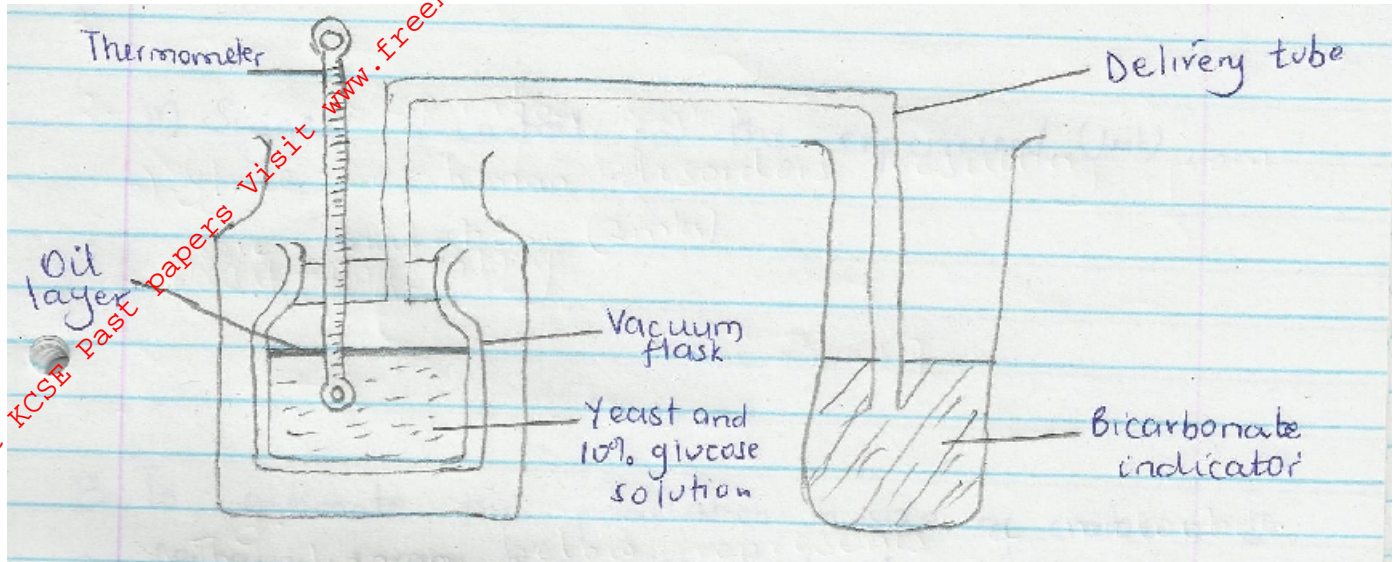 Thermometer
Delivery tube
Oil
layer
Vacuum
flask
Yeast and
10% glucose
solution
Bicarbonate
indicator
KCSE Past papers Visit www.free